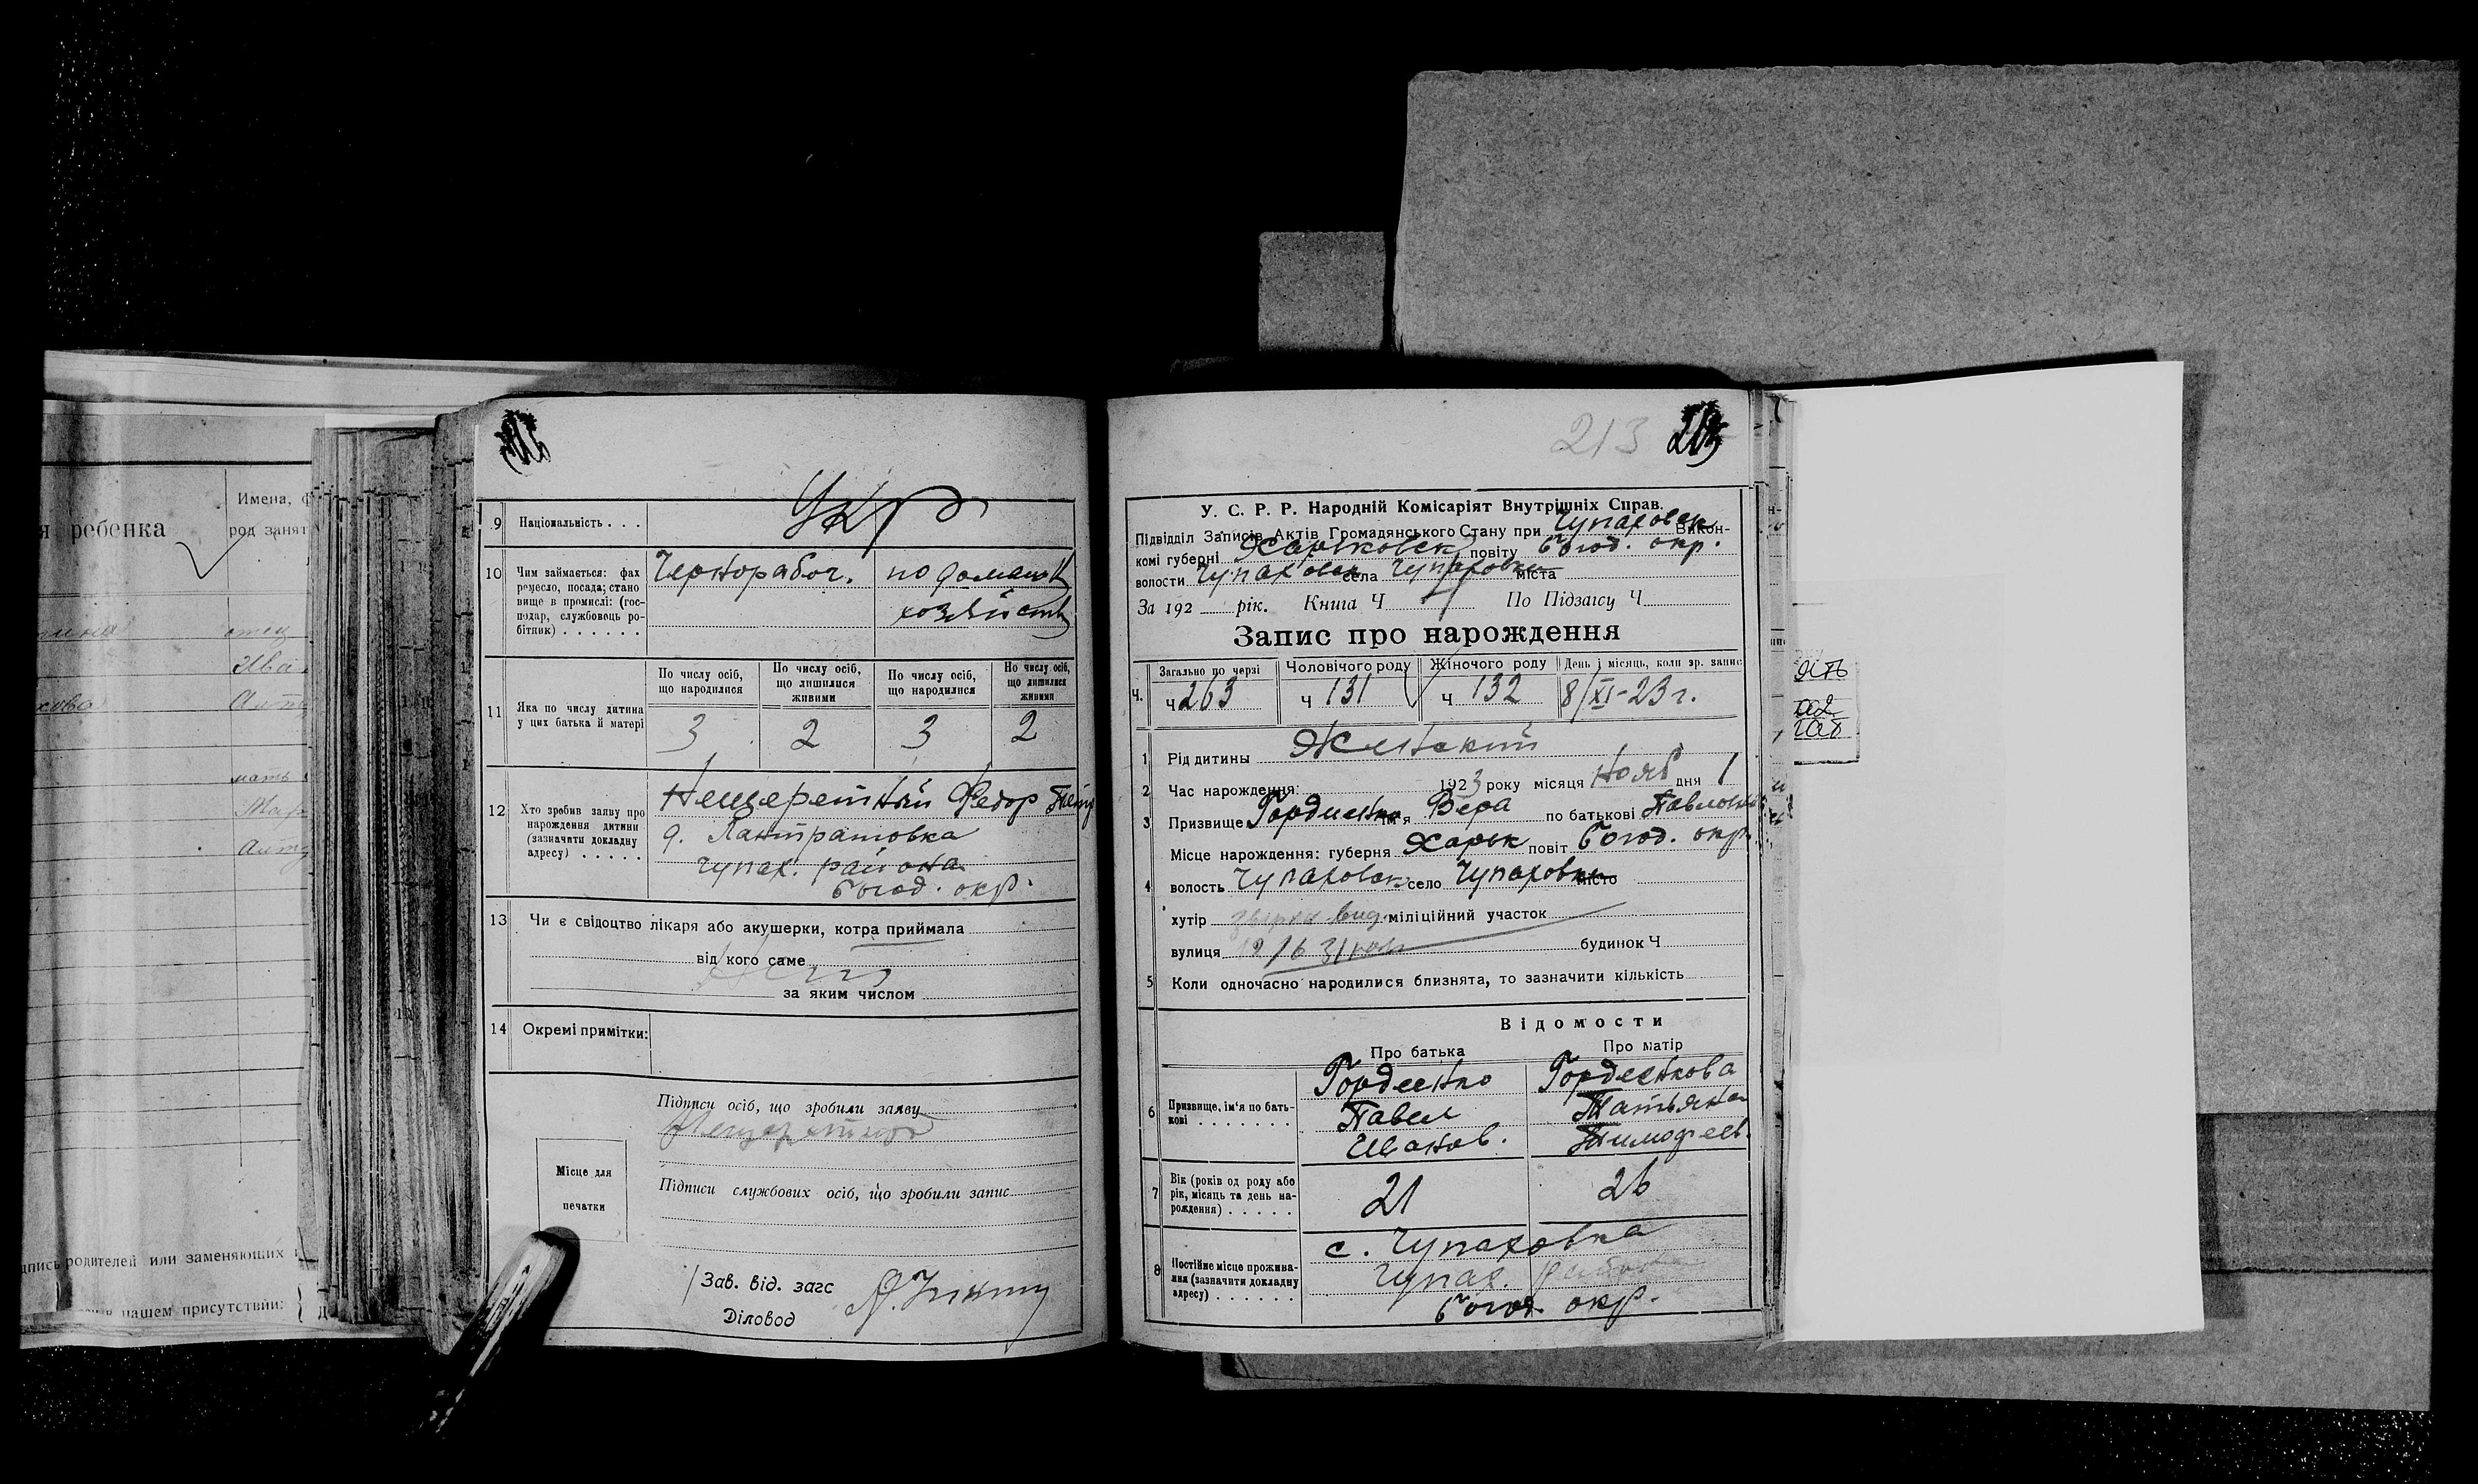 я ребенка
Имена, ф
род занят
отец
Ива
мать
дпись родителей или заменяющих
в нашем присутствии:
9 Національність . . .
Укр
10 Чим займається: фах
ремесло, посада; стано
вище в промислі: (гос-
подар, службовець ро-
бітник) . . . . . .
Чернорабоч.
по домашн
хозяйств
11 Яка по числу дитина
у цих батька й матері
По числу осіб,
що народилися
3
По числу осіб,
що лишилися
живими
2
По числу осіб,
що народилися
3
По числу осіб,
що лишилися
живими
2
12 Хто зробив заяву про
нарождення дитини
(зазначити докладну
адресу) . . . . .
Нещеретный Федор
д. Лантратовка
Чупах. района
Богод. окр.
13 Чи є свідоцтво лікаря або акушерки, котра приймала
від кого саме
за яким числом
14 Окремі примітки:
Підписи осіб, що зробили заяву
Місце для
печатки
Підписи службових осіб, що зробили запис
Зав. від. загс
Діловод
213 213
У. С. Р. Р. Народній Комісаріят Внутрішніх Справ.
Підвідділ Записів Актів Громадянського Стану при Чупаховск Викон-
комі губерні Харьковск повіту Богод. окр.
волости Чупаховск села Чупаховка міста
За 192 рік. Книга Ч По Підзагсу Ч
Запис про нарождення
Ч.
Загально по черзі
Ч 263
Чоловічого роду
Ч 131
Жіночого роду
Ч 132
День і місяць, коли зр. запис
8/XI-23 г.
1 Рід дитини Женский
2 Час нарождення: 1923 року місяця Нояб дня 1
3 Призвище Гордиенко ім'я Вера по батькові Павловн
4 Місце нарождення: губерня Харьк повіт Богод. окр.
волость Чупаховск село Чупаховка місто
хутір міліційний участок
вулиця будинок Ч
5 Коли одночасно народилися близнята, то зазначити кількість
Відомости
Про батька
Про матір
6 Призвище, ім'я по бать-
кові . . . . . . .
Гордиенко
Павел
Иванов.
Гордиенкова
Татьяна
Тимофеев.
7 Вік (років од роду або
рік, місяць та день на-
рождення) . . . . .
21
26
8 Постійне місце прожива-
ння (зазначити докладну
адресу) . . . . . .
с. Чупаховка
Чупах.
Богод. окр.